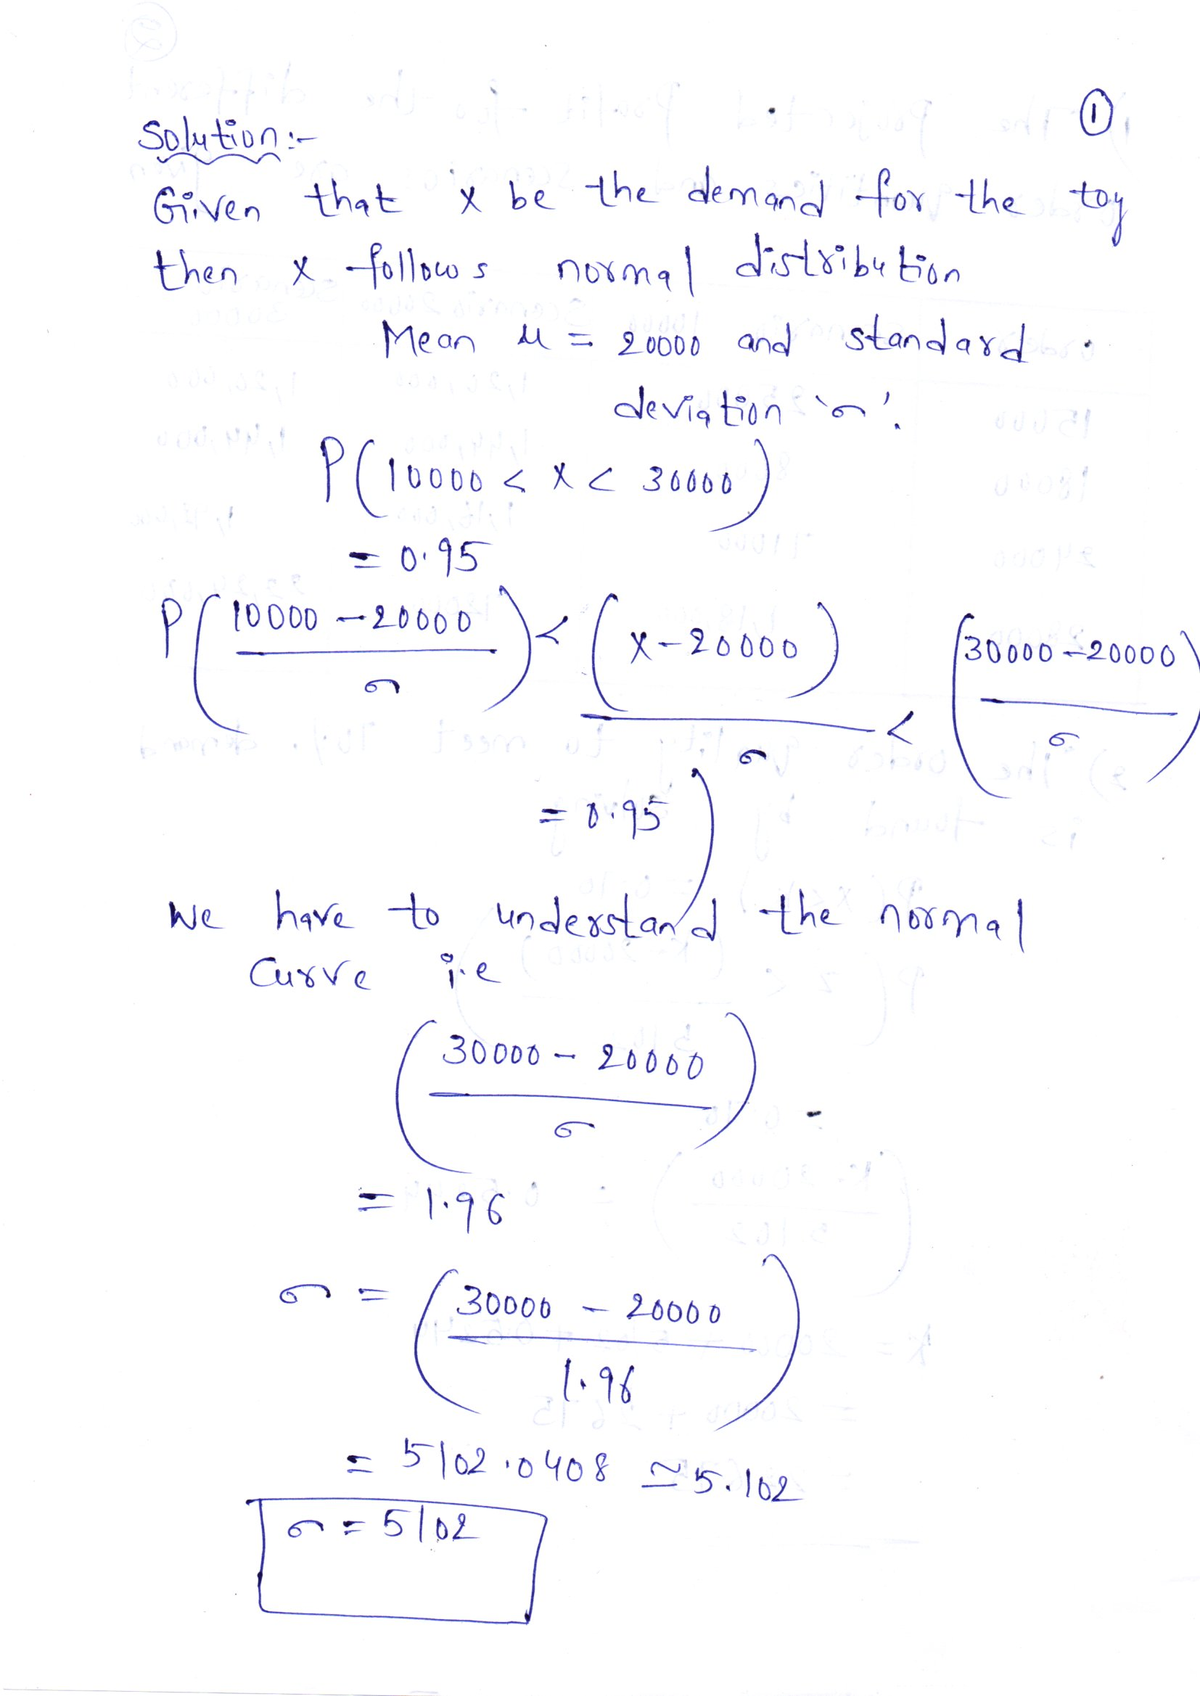 ①
Solution:-
Given that x be the demand for the toy
then x follows normal distribution
Mean μ = 20000 and standard
deviation 'σ'.
P(10000 < x < 30000)
= 0.95
P(10000 - 20000 / σ) < (x - 20000) / σ < (30000 - 20000 / σ)
= 0.95)
We have to understand the normal
Curve i.e
(30000 - 20000 / σ)
= 1.96
σ = (30000 - 20000 / 1.96)
= 5102.0408 ≃ 5.102
σ = 5102